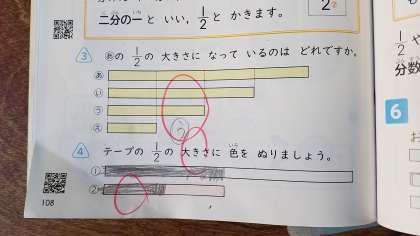 二分の一と いい、1/2 と かきます。
3 あの 1/2 の 大きさに なって いるのは どれですか。
あ
い
う
え
う
4 テープの 1/2 の 大きさに 色を ぬりましょう。
①
②
108
1/2
分数
6